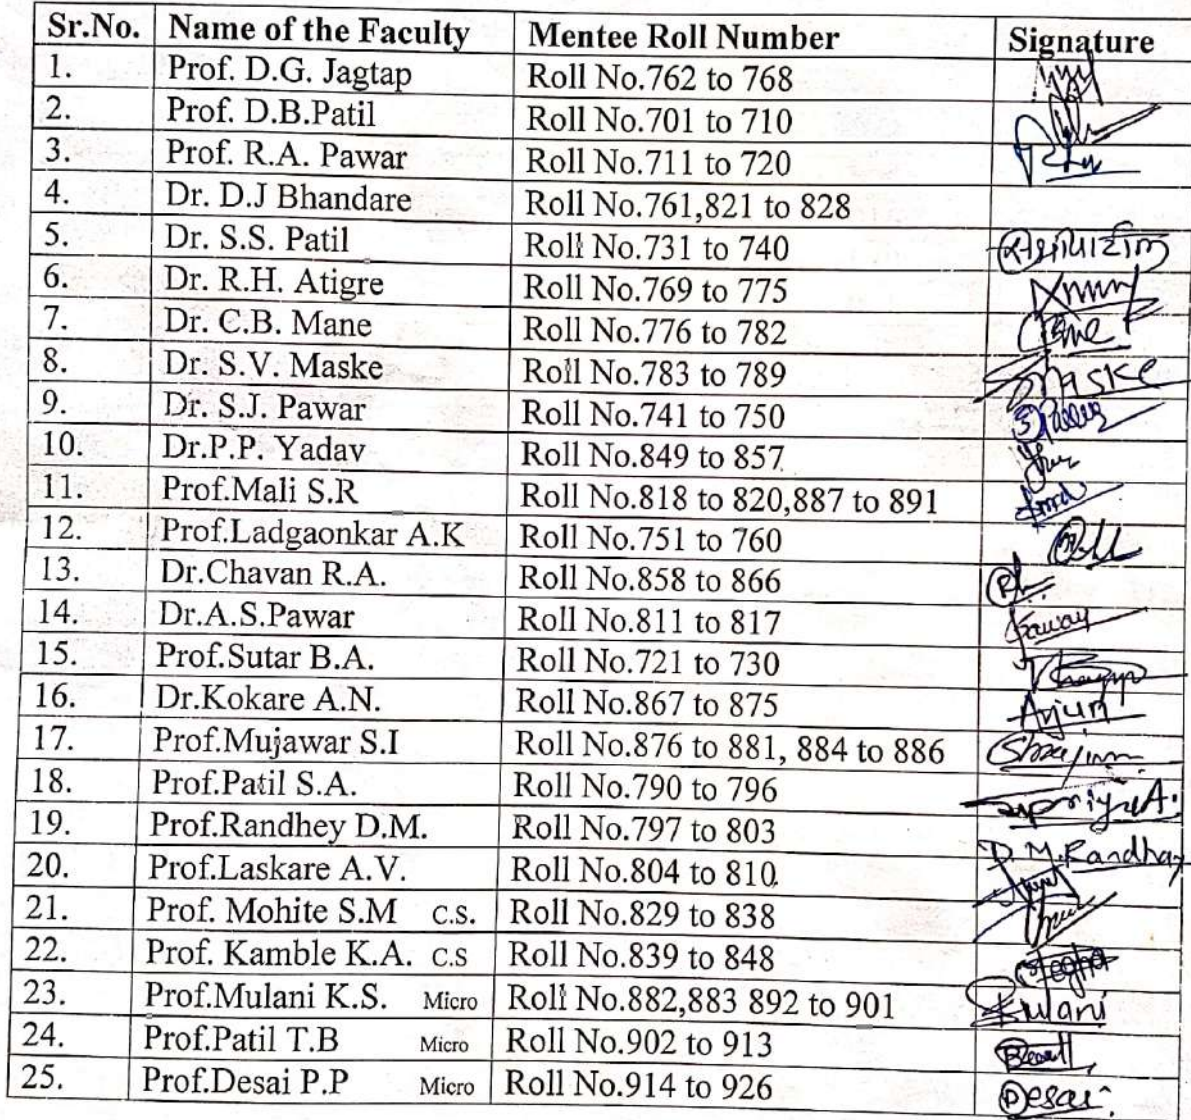 Sr.No. Name of the Faculty Mentee Roll Number Signature
1. Prof. D.G. Jagtap Roll No.762 to 768
2. Prof. D.B.Patil Roll No.701 to 710
3. Prof. R.A. Pawar Roll No.711 to 720
4. Dr. D.J Bhandare Roll No.761,821 to 828
5. Dr. S.S. Patil Roll No.731 to 740
6. Dr. R.H. Atigre Roll No.769 to 775
7. Dr. C.B. Mane Roll No.776 to 782
8. Dr. S.V. Maske Roll No.783 to 789 Maske
9. Dr. S.J. Pawar Roll No.741 to 750
10. Dr.P.P. Yadav Roll No.849 to 857
11. Prof.Mali S.R Roll No.818 to 820,887 to 891
12. Prof.Ladgaonkar A.K Roll No.751 to 760
13. Dr.Chavan R.A. Roll No.858 to 866
14. Dr.A.S.Pawar Roll No.811 to 817
15. Prof.Sutar B.A. Roll No.721 to 730
16. Dr.Kokare A.N. Roll No.867 to 875 Arjun
17. Prof.Mujawar S.I Roll No.876 to 881, 884 to 886
18. Prof.Patil S.A. Roll No.790 to 796
19. Prof.Randhey D.M. Roll No.797 to 803 D.M.Randhay
20. Prof.Laskare A.V. Roll No.804 to 810
21. Prof. Mohite S.M C.S. Roll No.829 to 838
22. Prof. Kamble K.A. C.S Roll No.839 to 848
23. Prof.Mulani K.S. Micro Roll No.882,883 892 to 901
24. Prof.Patil T.B Micro Roll No.902 to 913
25. Prof.Desai P.P Micro Roll No.914 to 926 Desai